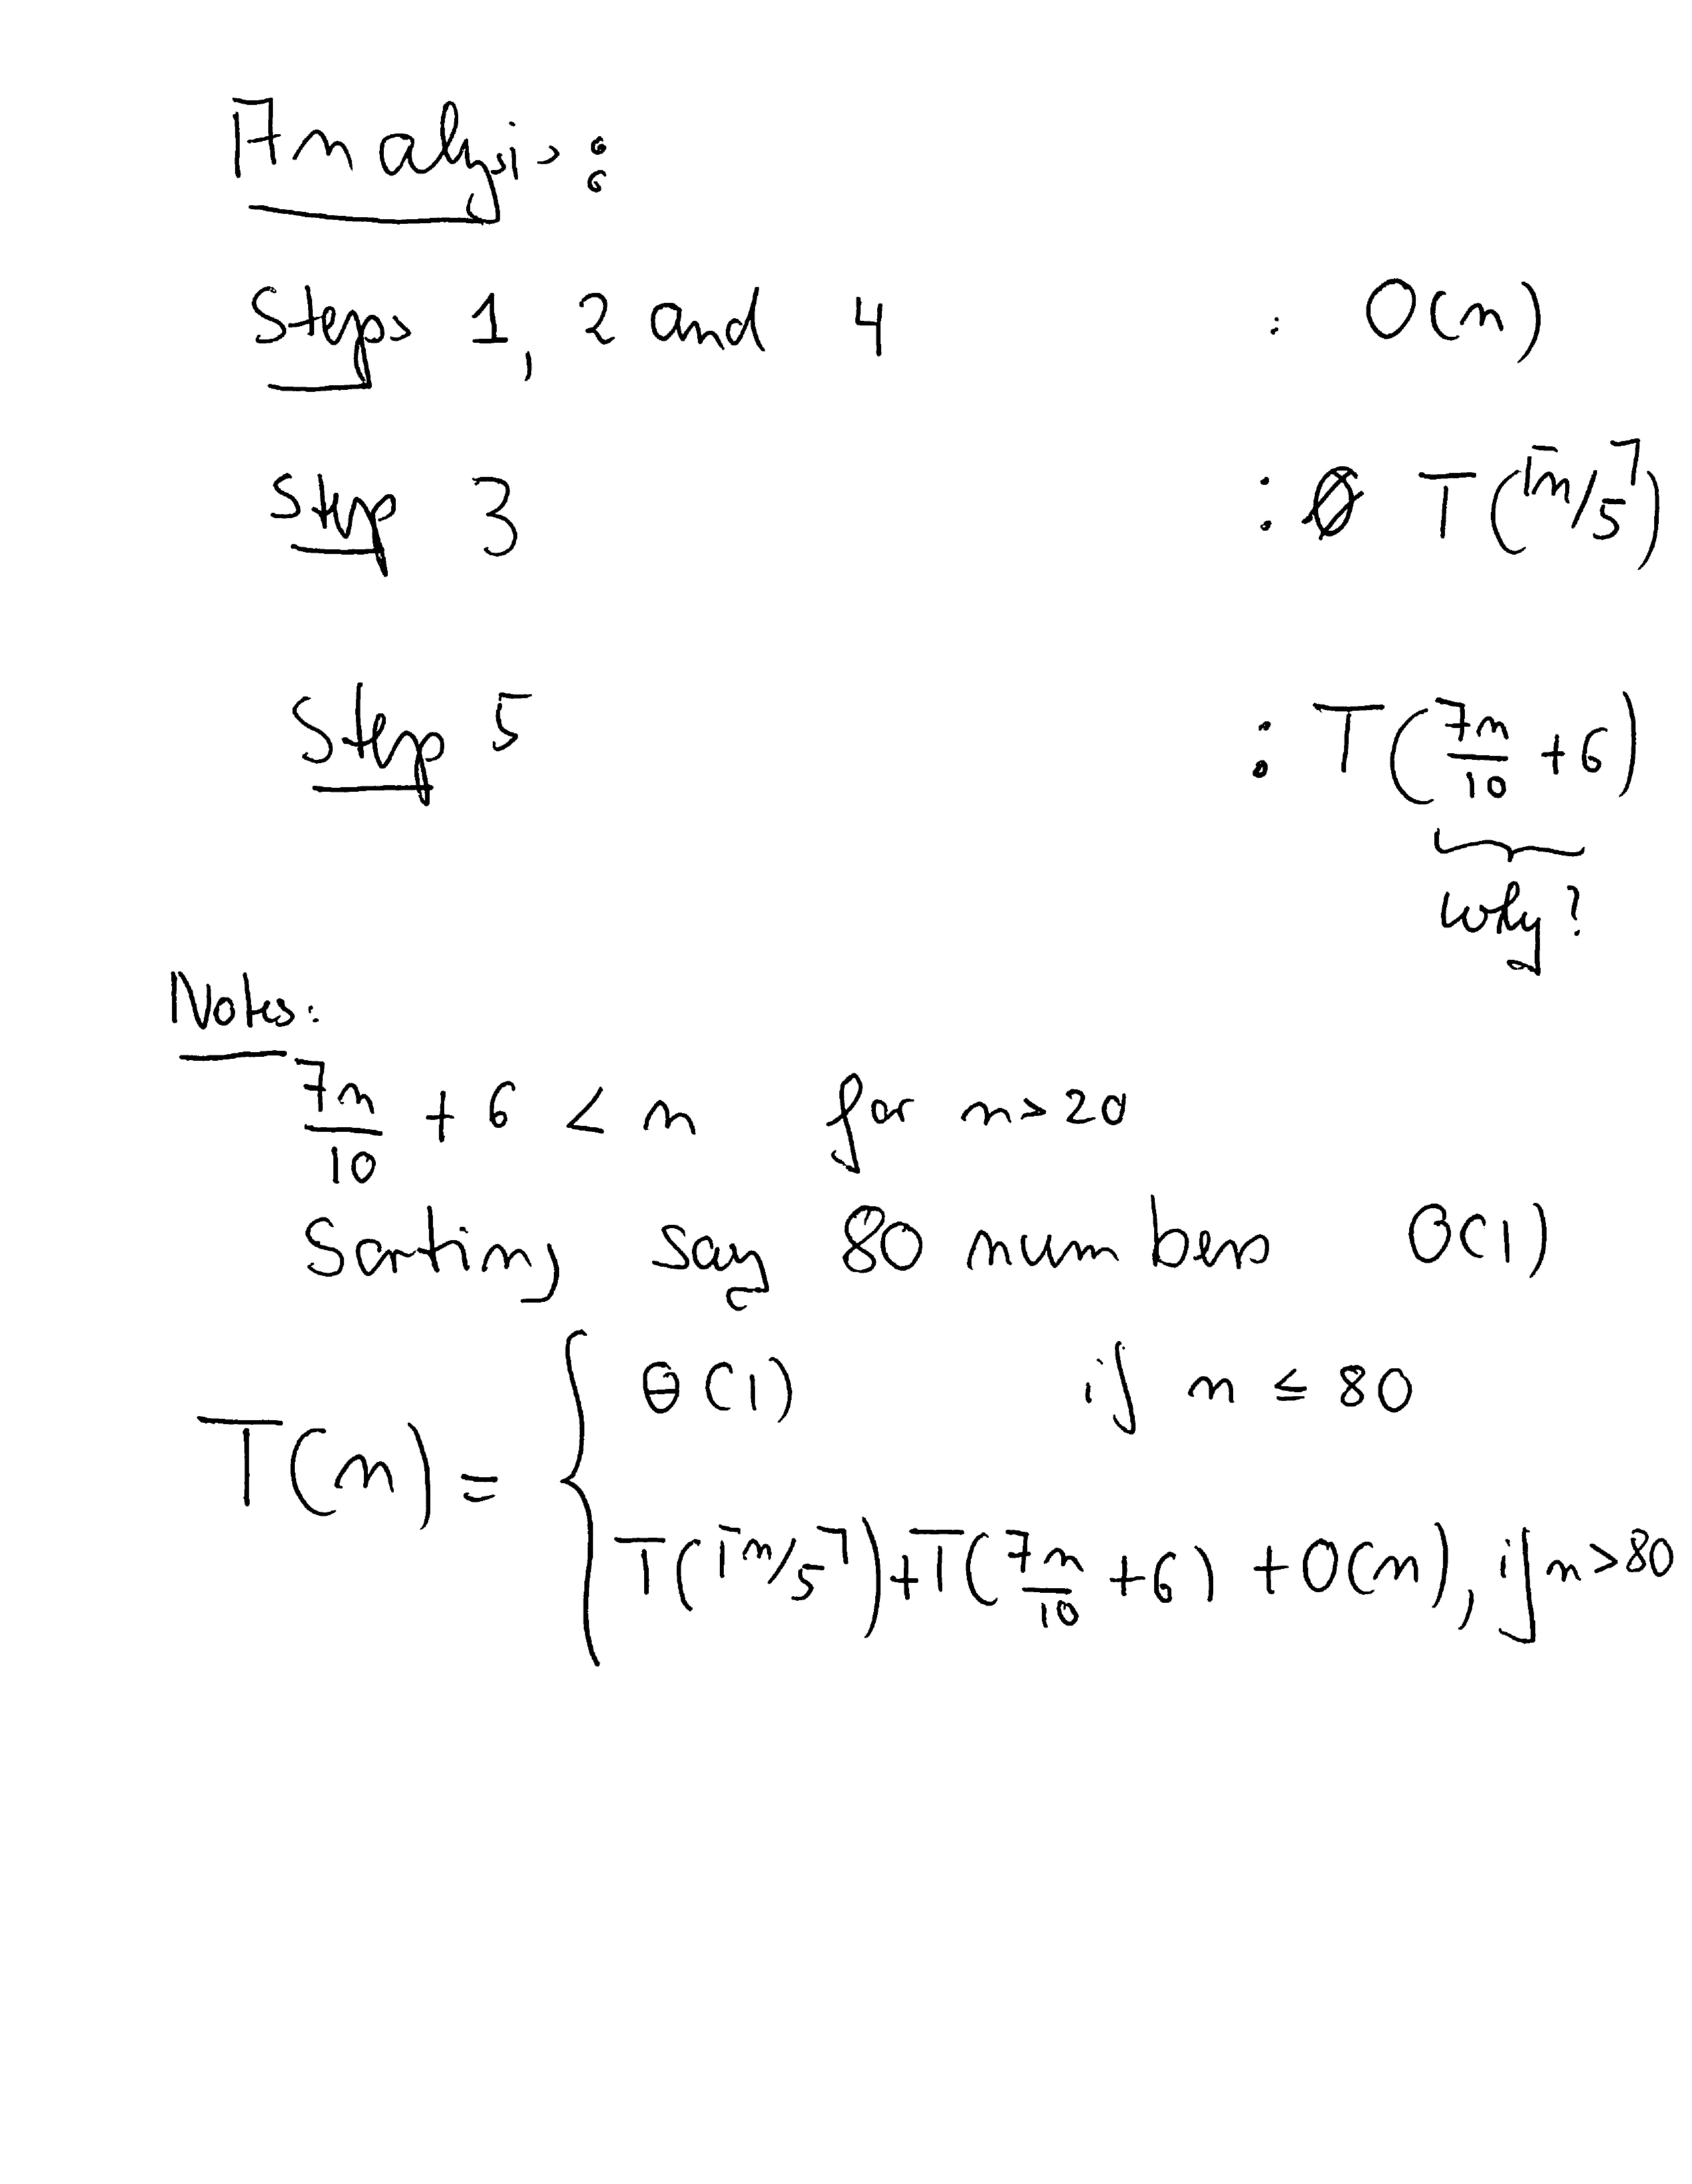 Analysis:
Steps 1, 2 and 4 : O(n)
Step 3 : T(⌈n/5⌉)
Step 5 : T(7n/10 + 6)
why?
Notes:
7n/10 + 6 < n for n > 20
Sorting say 80 numbers O(1)
T(n) = { Θ(1) if n ≤ 80
T(⌈n/5⌉) + T(7n/10 + 6) + O(n), if n > 80